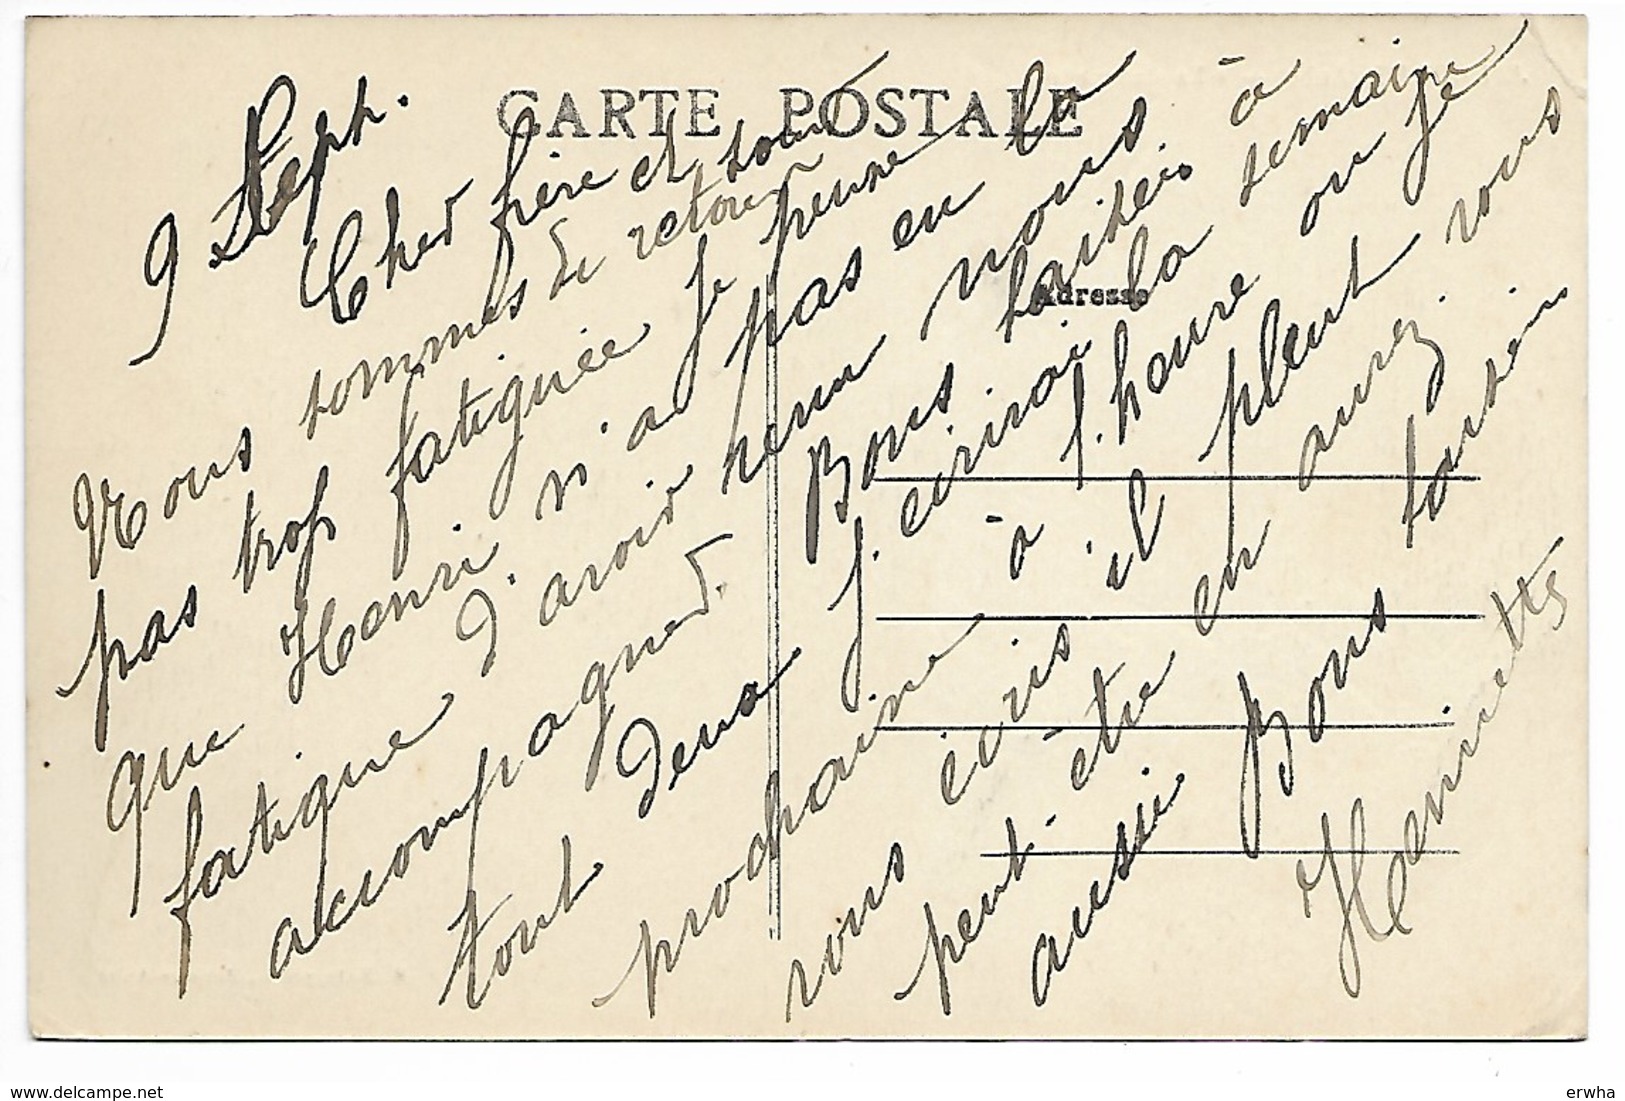 CARTE POSTALE
Adresse
9 Sept.
Cher frère et sœur
Nous sommes de retour
pas trop fatiguée je pense
que Henri n'a pas eu la
fatigue d'avoir venu nous
accompagner. Bons baisers à
tout deux j'ecrirai la semaine
prochaine à l'heure ou je
vous écris il pleut vous
peut-être en aurez
aussi Bons baisers
Henriette
www.delcampe.net
erwha